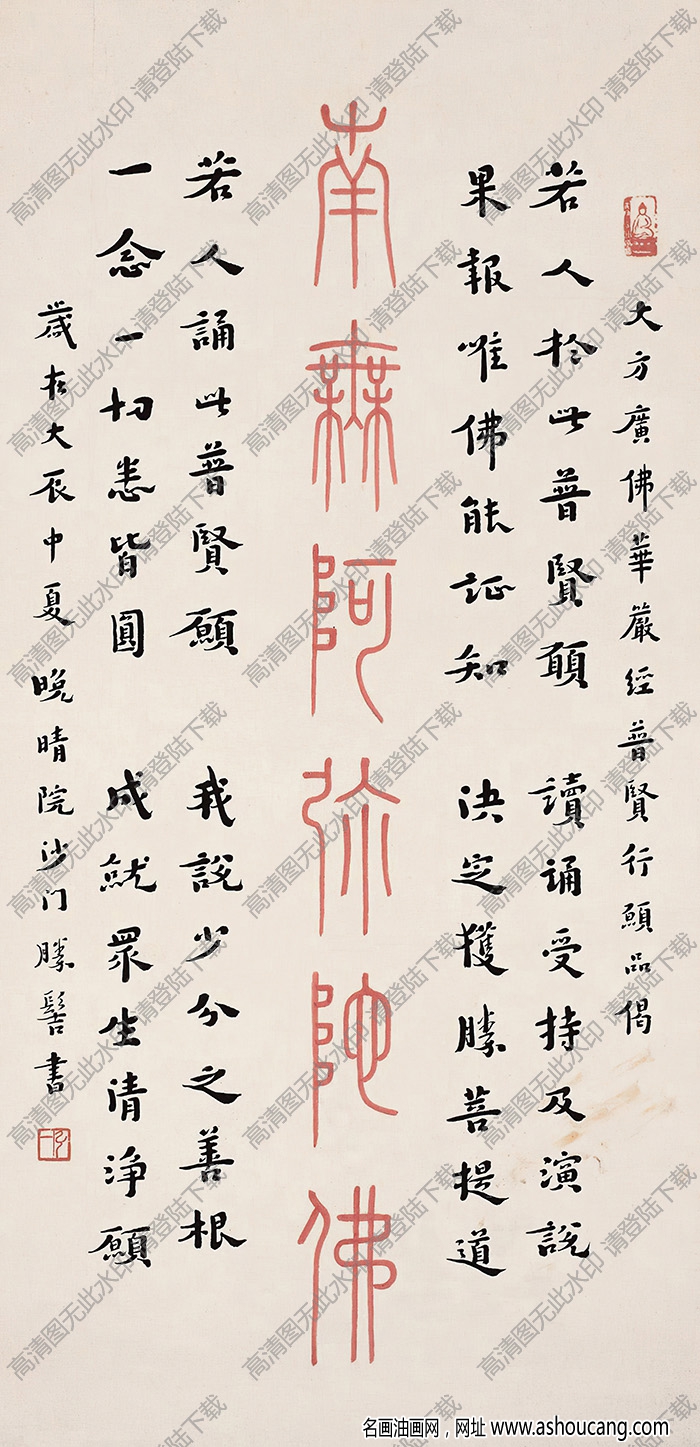 大方廣佛華嚴經普賢行願品偈
若人於此普賢願 讀誦受持及演說
果報唯佛能証知 決定獲勝菩提道
南無阿弥陀佛
若人誦此普賢願 我說少分之善根
一念一切悉皆圓 成就眾生清淨願
歲在大辰中夏 晚晴院沙门勝髻書
弘一
高清图无此水印 请登陆下载
名画油画网，网址 www.ashoucang.com